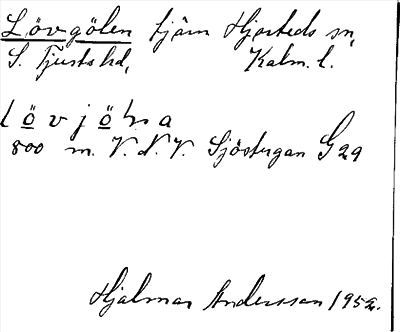 Lövgölen tjärn Hjorteds sn,
S. Tjusts hd, Kalm. l.
lövjöḷna
800 m. V. N. V. Sjöstugan G29
Hjalmar Andersson 1952.